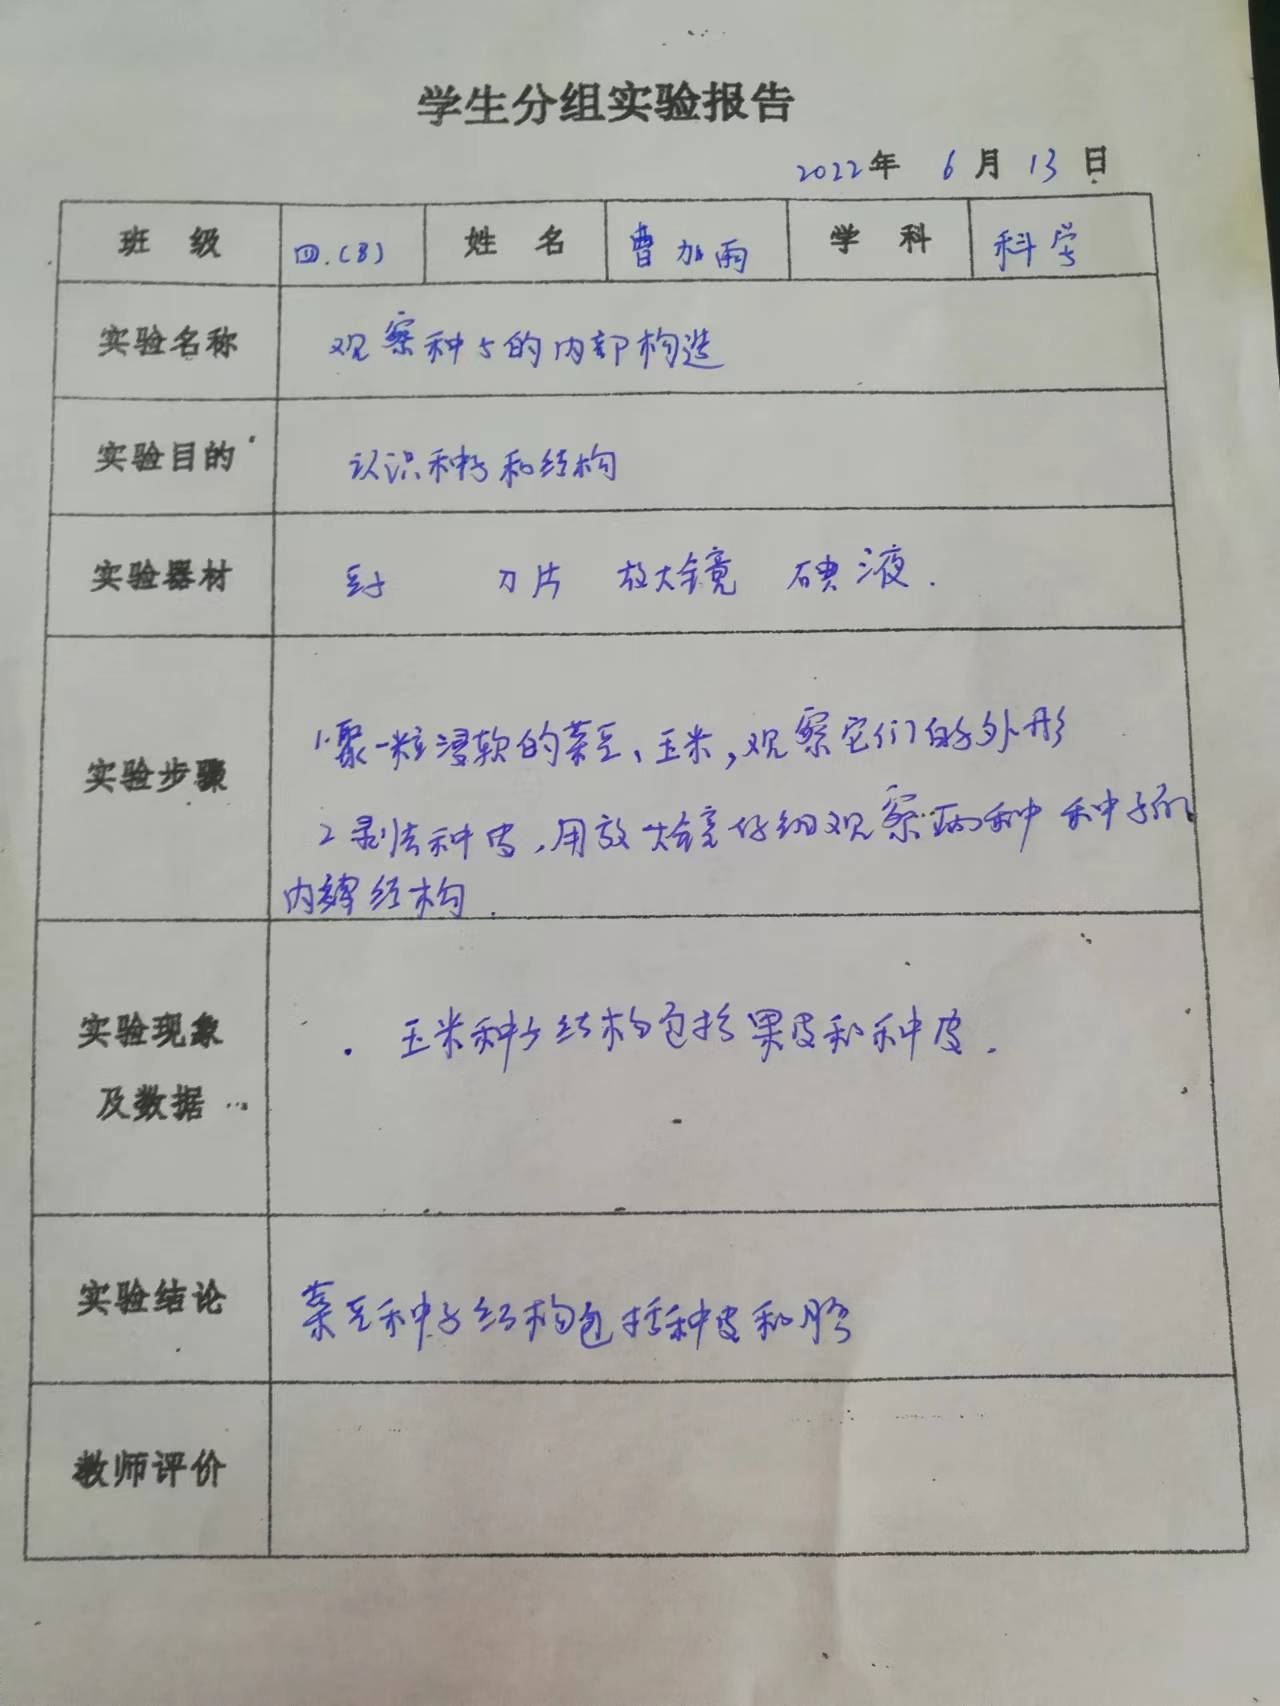 学生分组实验报告
2022年 6月13日
班级 四.(8) 姓名 曹加雨 学科 科学
实验名称 观察种子的内部构造
实验目的 认识种子和结构
实验器材 刀片 放大镜 碘液.
1.聚一粒浸软的菜豆、玉米,观察它们的外形
实验步骤
2剥去种皮,用放大镜仔细观察两种种子的
内部结构.
实验现象
. 玉米种子结构包括果皮和种皮.
及数据
实验结论 菜豆种子结构包括种皮和胚
教师评价